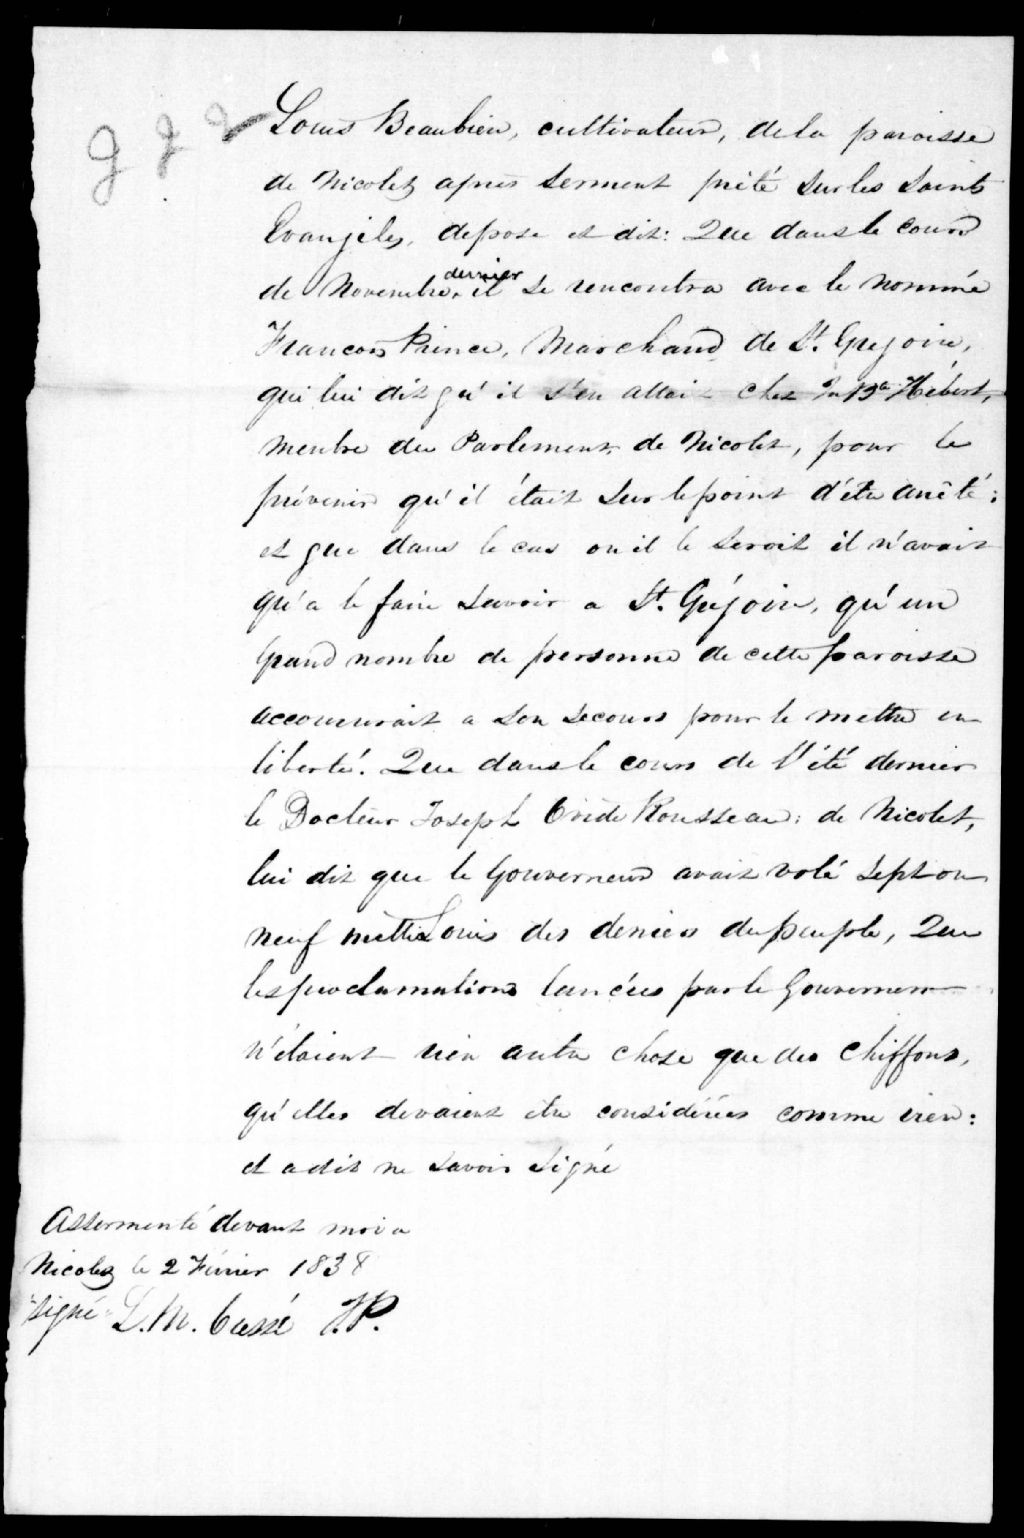 Louis Beaubien, cultivateur, de la paroisse
de Nicolet, après serment prêté sur les Saints
Evangiles, depose et dit: Que dans le cours
de Novembre dernier il se rencontra avec le nommé
Francois Prince, Marchand de St. Grejoire,
qui lui dit qu'il s'en allait chez Jn Bte Hébert,
menbre du Parlement de Nicolet, pour le
prévenir qu'il était sur le point d'être arrêté:
et que dans le cas ou il le seroit il n'avait
qu'a le faire savoir a St. Gréjoire, qu'un
grand nombre de personne de cette paroisse
accoureroit a son secours pour le mettre en
liberté. Que dans le cours de l'été dernier
le Docteur Joseph Ovide Rousseau: de Nicolet,
lui dit que le Gouverneur avait volé sept ou
neuf mille Louis des deniers du peuple, Que
les proclamations lancées par le Gouverneur
n'étaient rien autre chose que des chiffons,
qu'elles devaient être considérées comme rien:
et a dit ne savoir signé
Assermenté devant moi a
Nicolet le 2 Février 1838
"signé" L. M. Cressé J.P.